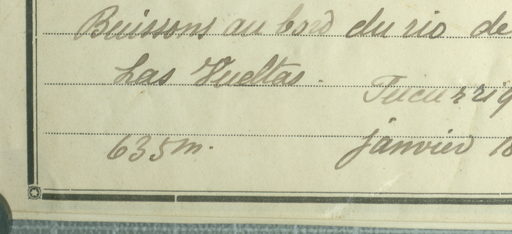 Buissons au bord du rio de
Las Vueltas. Tucurriq
635m. janvier 18